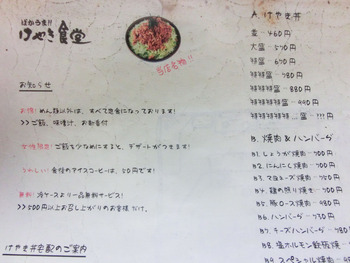 ばかうま!!
けやき食堂
当店名物!!
お知らせ
お得! めん類以外は、すべて定食になっております!
>>ご飯、味噌汁、お新香付
女性限定! ご飯を少なめにすると、デザートがつきます!
うれしい! 食後のアイスコーヒーは、50円です!
無料! 冷ケースより一品無料サービス!
>>500円以上お召し上がりのお客様だけ。
けやき丼宅配のご案内
A. けやき丼
並 - 460円
大盛 - 570円
特盛 - 670円
特特盛 - 780円
特特特盛 - 880円
特特特特盛 - 990円
特特特特特… 盛 - !!!円
B. 焼肉 & ハンバーグ
B1. しょうが焼肉 - 700円
B2. にんにく焼肉 - 700円
B3. マヨネーズ焼肉 - 700
B4. 鶏の照り焼き - 700
B5. 豚ロース焼肉 - 980
B6. ハンバーグ - 730
B7. チーズハンバーグ - 780
B8. 塩ホルモン鉄板焼
B9. スペシャル焼肉